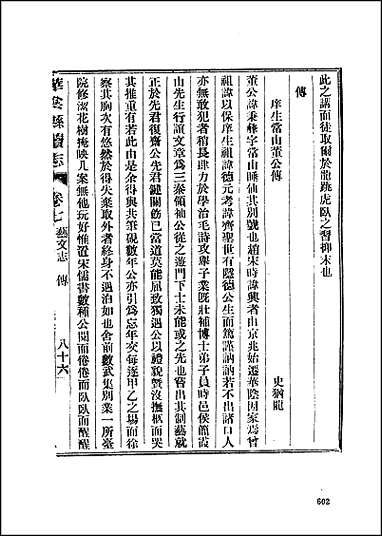 此之謂而徒取爾於龍跳虎臥之習抑末也
傳
庠生常山董公傳
史猶龍
董公諱秉彝字常山睡仙其別號也趙宋時諱興者由京兆始遷華陰因家焉曾
祖諱以保庠生祖諱德元考諱齊聖世有隱德公生而篤謹訥訥若不出諸口人
亦無敢犯者稍長肆力於學治毛詩攻舉子業旣壯補博士弟子員時邑侯簡
山先生行誼文章為三秦領袖公從之遊門下士未能或之先也嘗出其制藝就
正於先君復齋公先君鍵關飭已當道莫能屈致獨遇公以禮貌幣沒撫柩而哭
其推重有若此由是余得與共筆硯數年公亦引為忘年交每逐甲乙之場而徐
察其胸次有悠然於得失棄取外者終身不遇泊如也舍前數武集別業一所臺
院修潔花樹掩映几案無他玩好惟道宋儒書數種公閱而倦倦而臥臥而醒醒
華陰縣續志
卷七
藝文志 傳
八十六
602